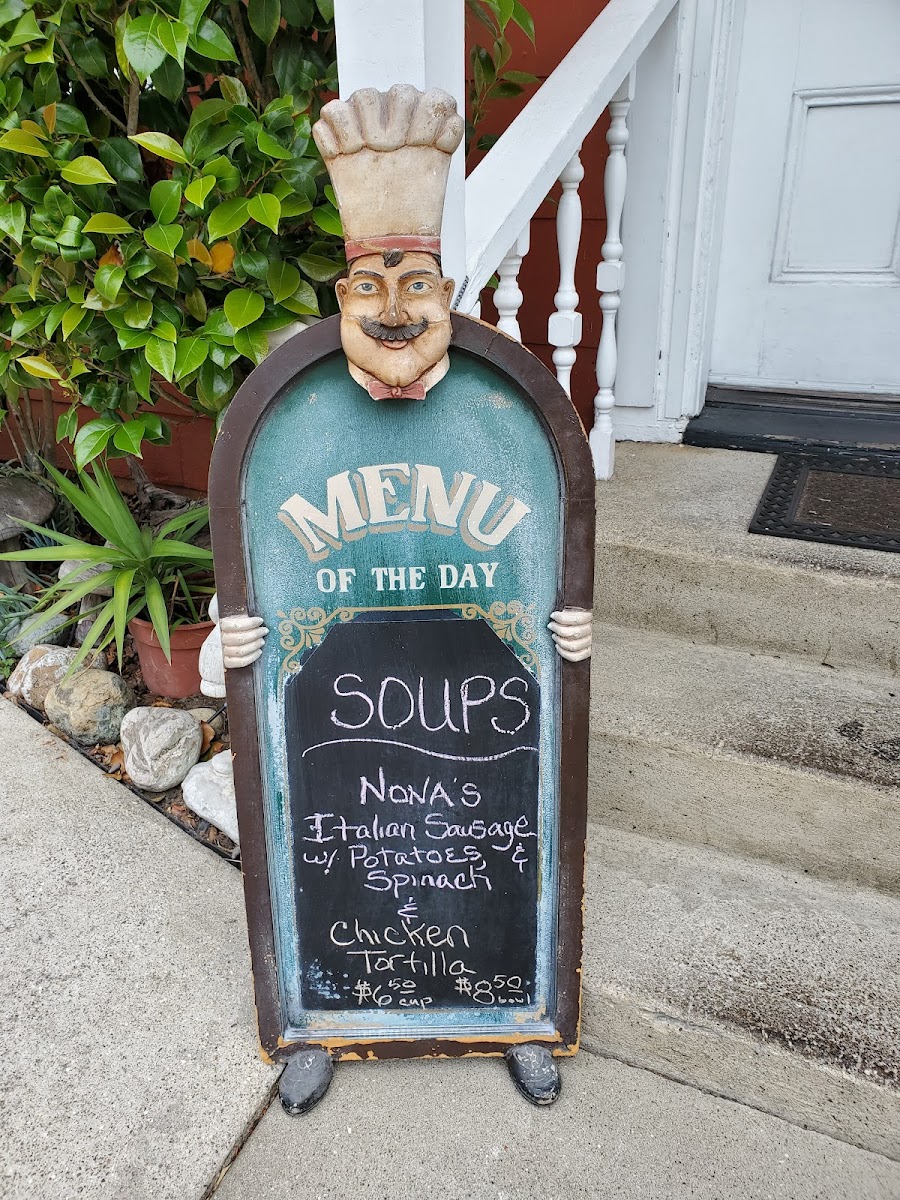 MENU
OF THE DAY
SOUPS
NONA'S
Italian Sausage
w/ Potatoes &
Spinach
&
Chicken
Tortilla
$6.50 cup $8.50 bowl